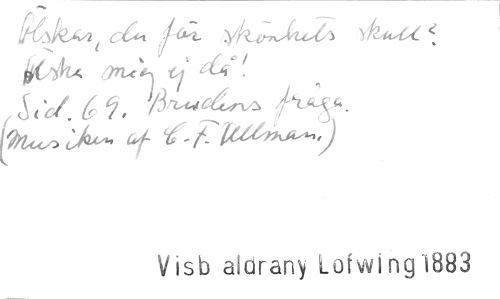 Älskar, du för skönhets skull?
Älska mig ej då!
Sid. 69. Brudens fråga.
(Musiken af C. F. Ullman.)
Visb aldrany Lofwing 1883